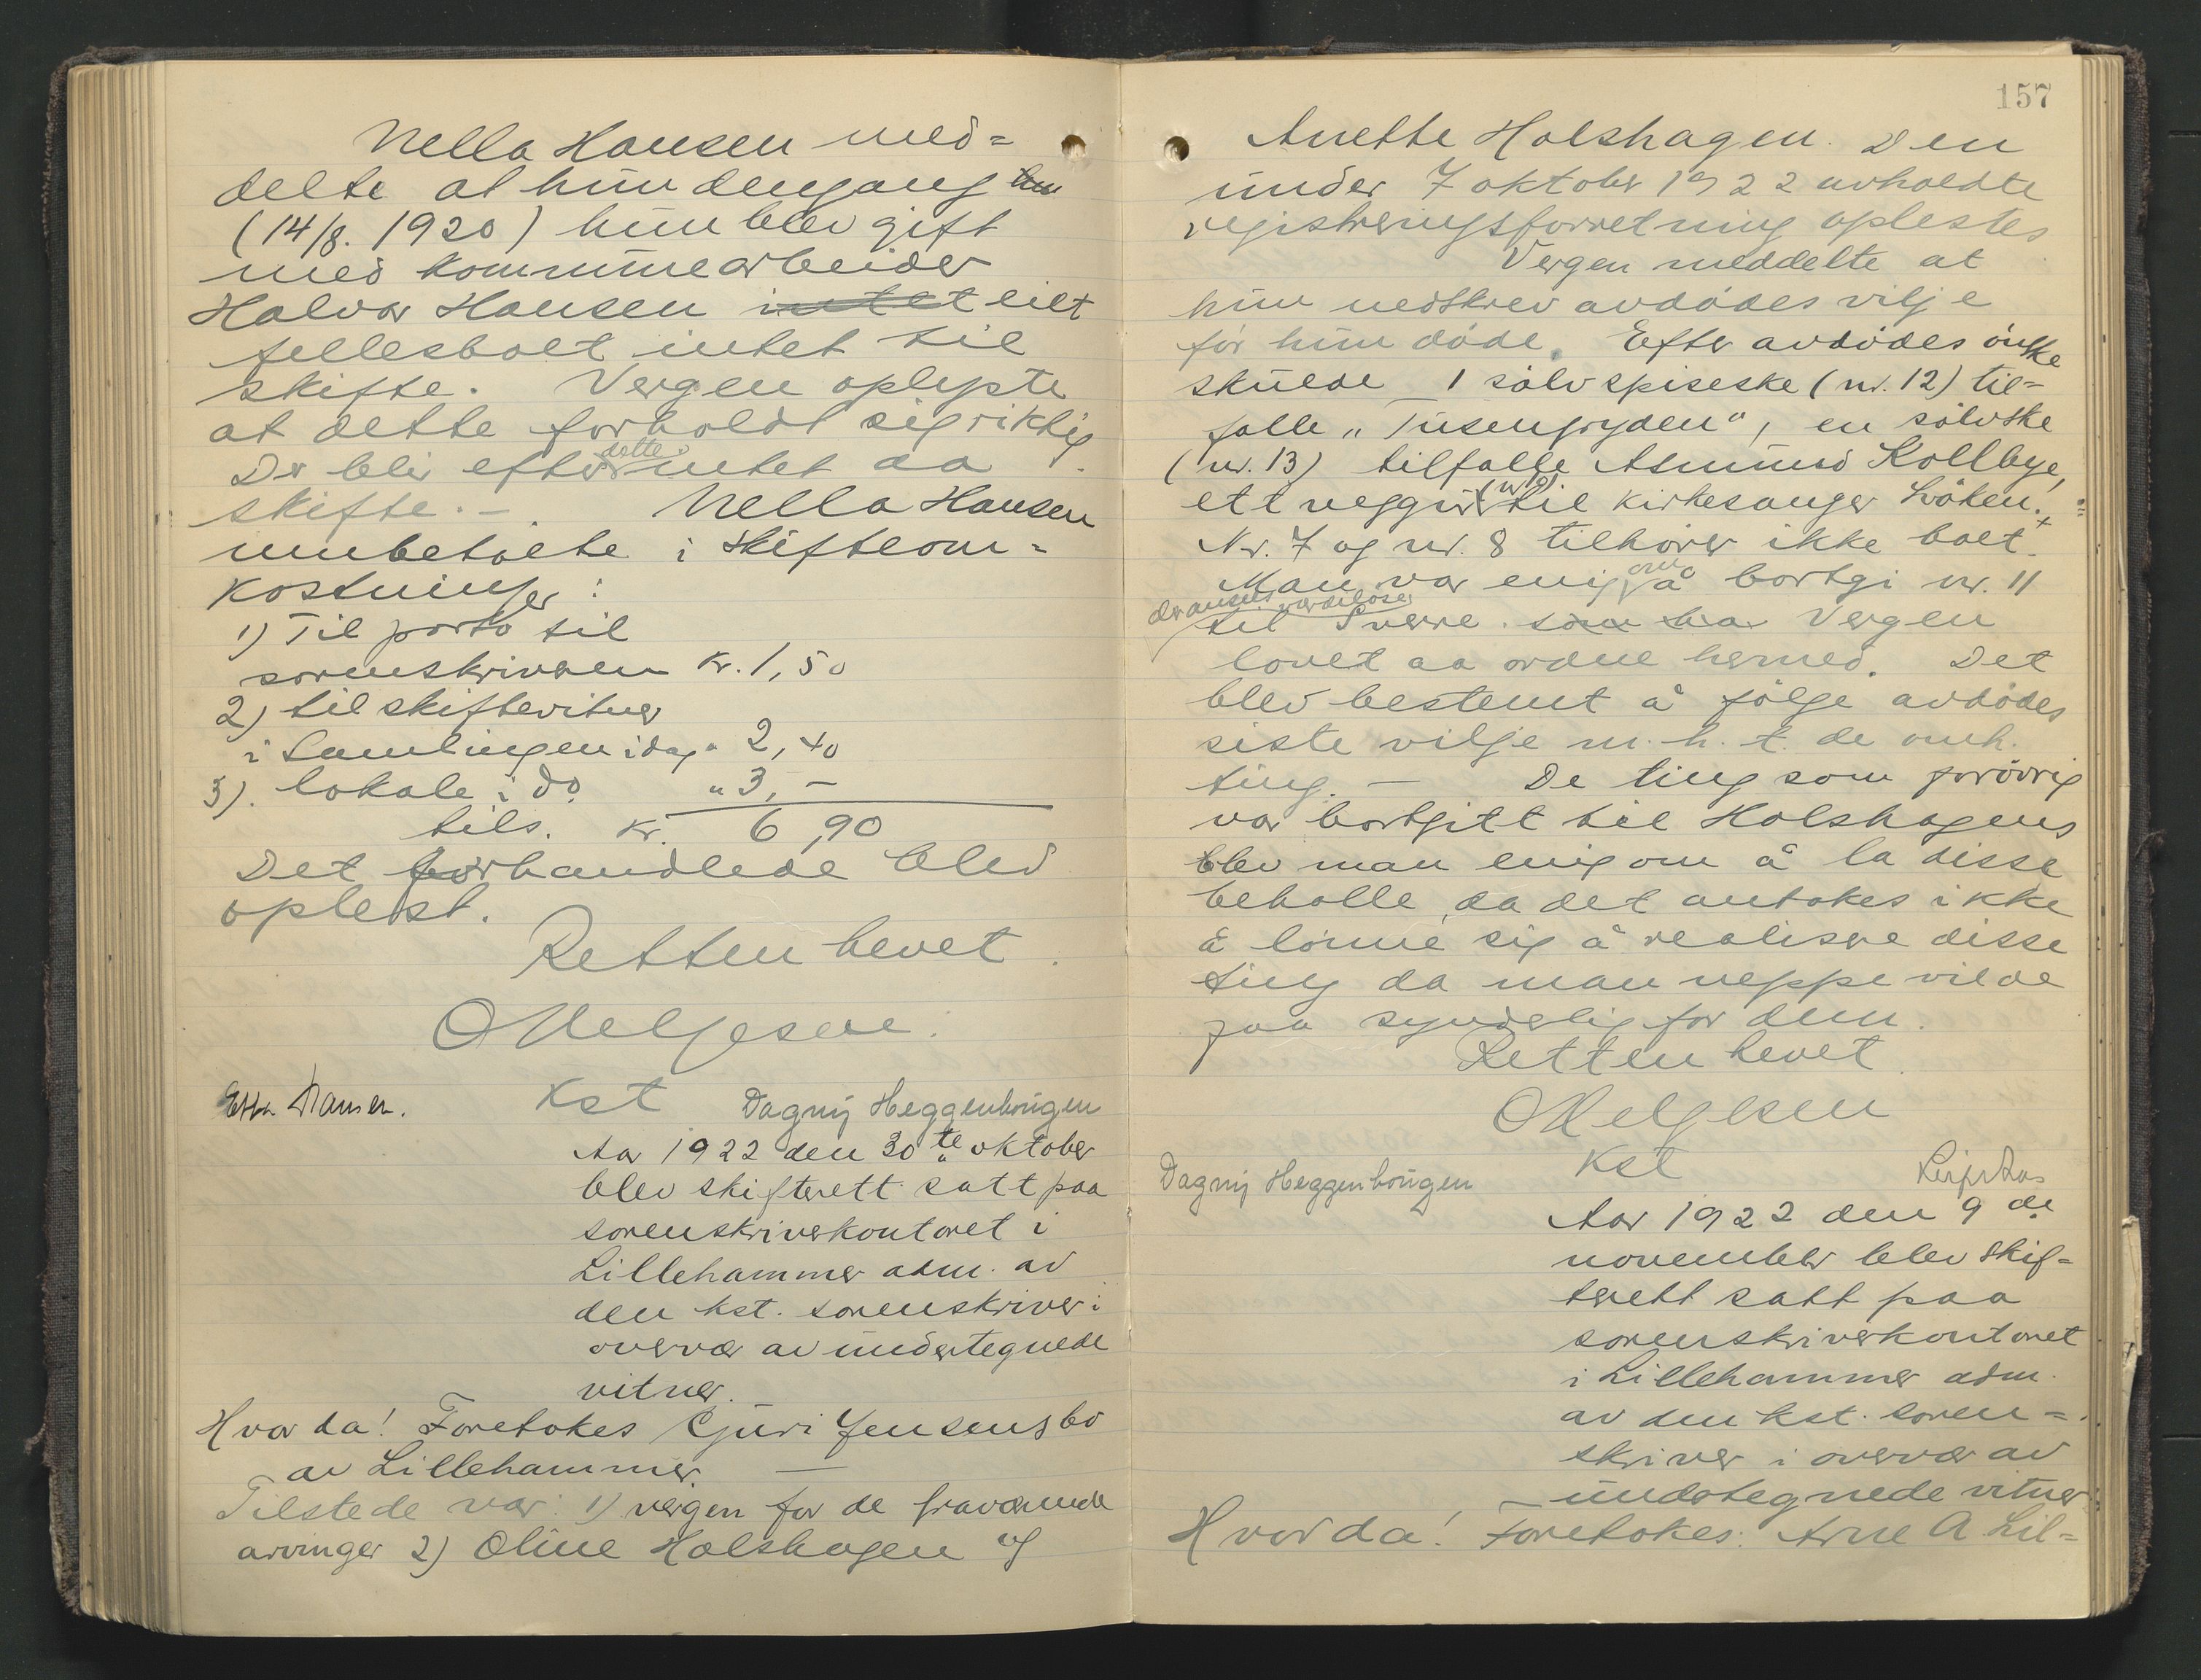 Nella Hansen med=
delte at hun dengang hun
(14/8. 1920) hun blev gift
med kommunearbeider
Halvor Hansen intet eilt
fellesboet intet til
skifte. Vergen oplyste
at dette forholdt sig riktig
dette
Der blir efter intet aa
skifte. – Nella Hansen
innbetalte i skifteom=
kostninger:
1) Til porto til
sorenskriveren kr. 1,50
2) til skiftevitner
i Samlingen idag " 2,40
3). lokale i do " 3, –
tils. kr. 6,90
Det forhandlede blev
oplest.
Retten hevet.
O Helgesen.
Hansen. Kst Dagny Heggenhougen
Aar 1922 den 30te oktober
blev skifterett satt paa
sorenskriverkontoret i
Lillehammer adm. av
den kst. sorenskriver i
overvær av undertegnede
vitner.
Hvor da! Foretokes Guri Jensens bo
av Lillehammer. —
Tilstede var: 1) vergen for de fraværende
arvinger 2) Oline Holshagen og
157
Anette Holshagen. Den
under 7 oktober 1922 avholdte
registreringsforretning oplestes
Vergen meddelte at
hun nedskrev avdödes vilje
för hun döde. Efter avdödes önske
skulde 1 sölvspiseske (nr. 12) til=
falle „Tusenfryden", en sölvske
(nr. 13) tilfalle Asmund Kollbye,
ett veggur (nr 9) til kirkesanger Löken.
Nr. 7 og nr. 8 tilhörer ikke boet.
om
Man var enig å bortgi nr. 11
der ansees verdilöse
til Sverre. som bra Vergen
lovet aa ordne hermed. Det
blev bestemt å fölge avdödes
siste vilje m. h. t. de omh.
ting. — De ting som forövrig
var bortgitt til Holshagens
blev man enig om å la disse
beholle, da det antokes ikke
å lönne sig å realisere disse
ting da man neppe vilde
faa synderlig for dem.
Retten hevet
O Helgesen
Dagny Heggenhougen Kst
Aar 1922 den 9de
november blev skif=
terett satt paa
sorenskriverkontoret
i Lillehammer adm.
av den kst. soren=
skriver i overvær av
undertegnede vitner
Hvor da! Foretokes: Arne A Lil=